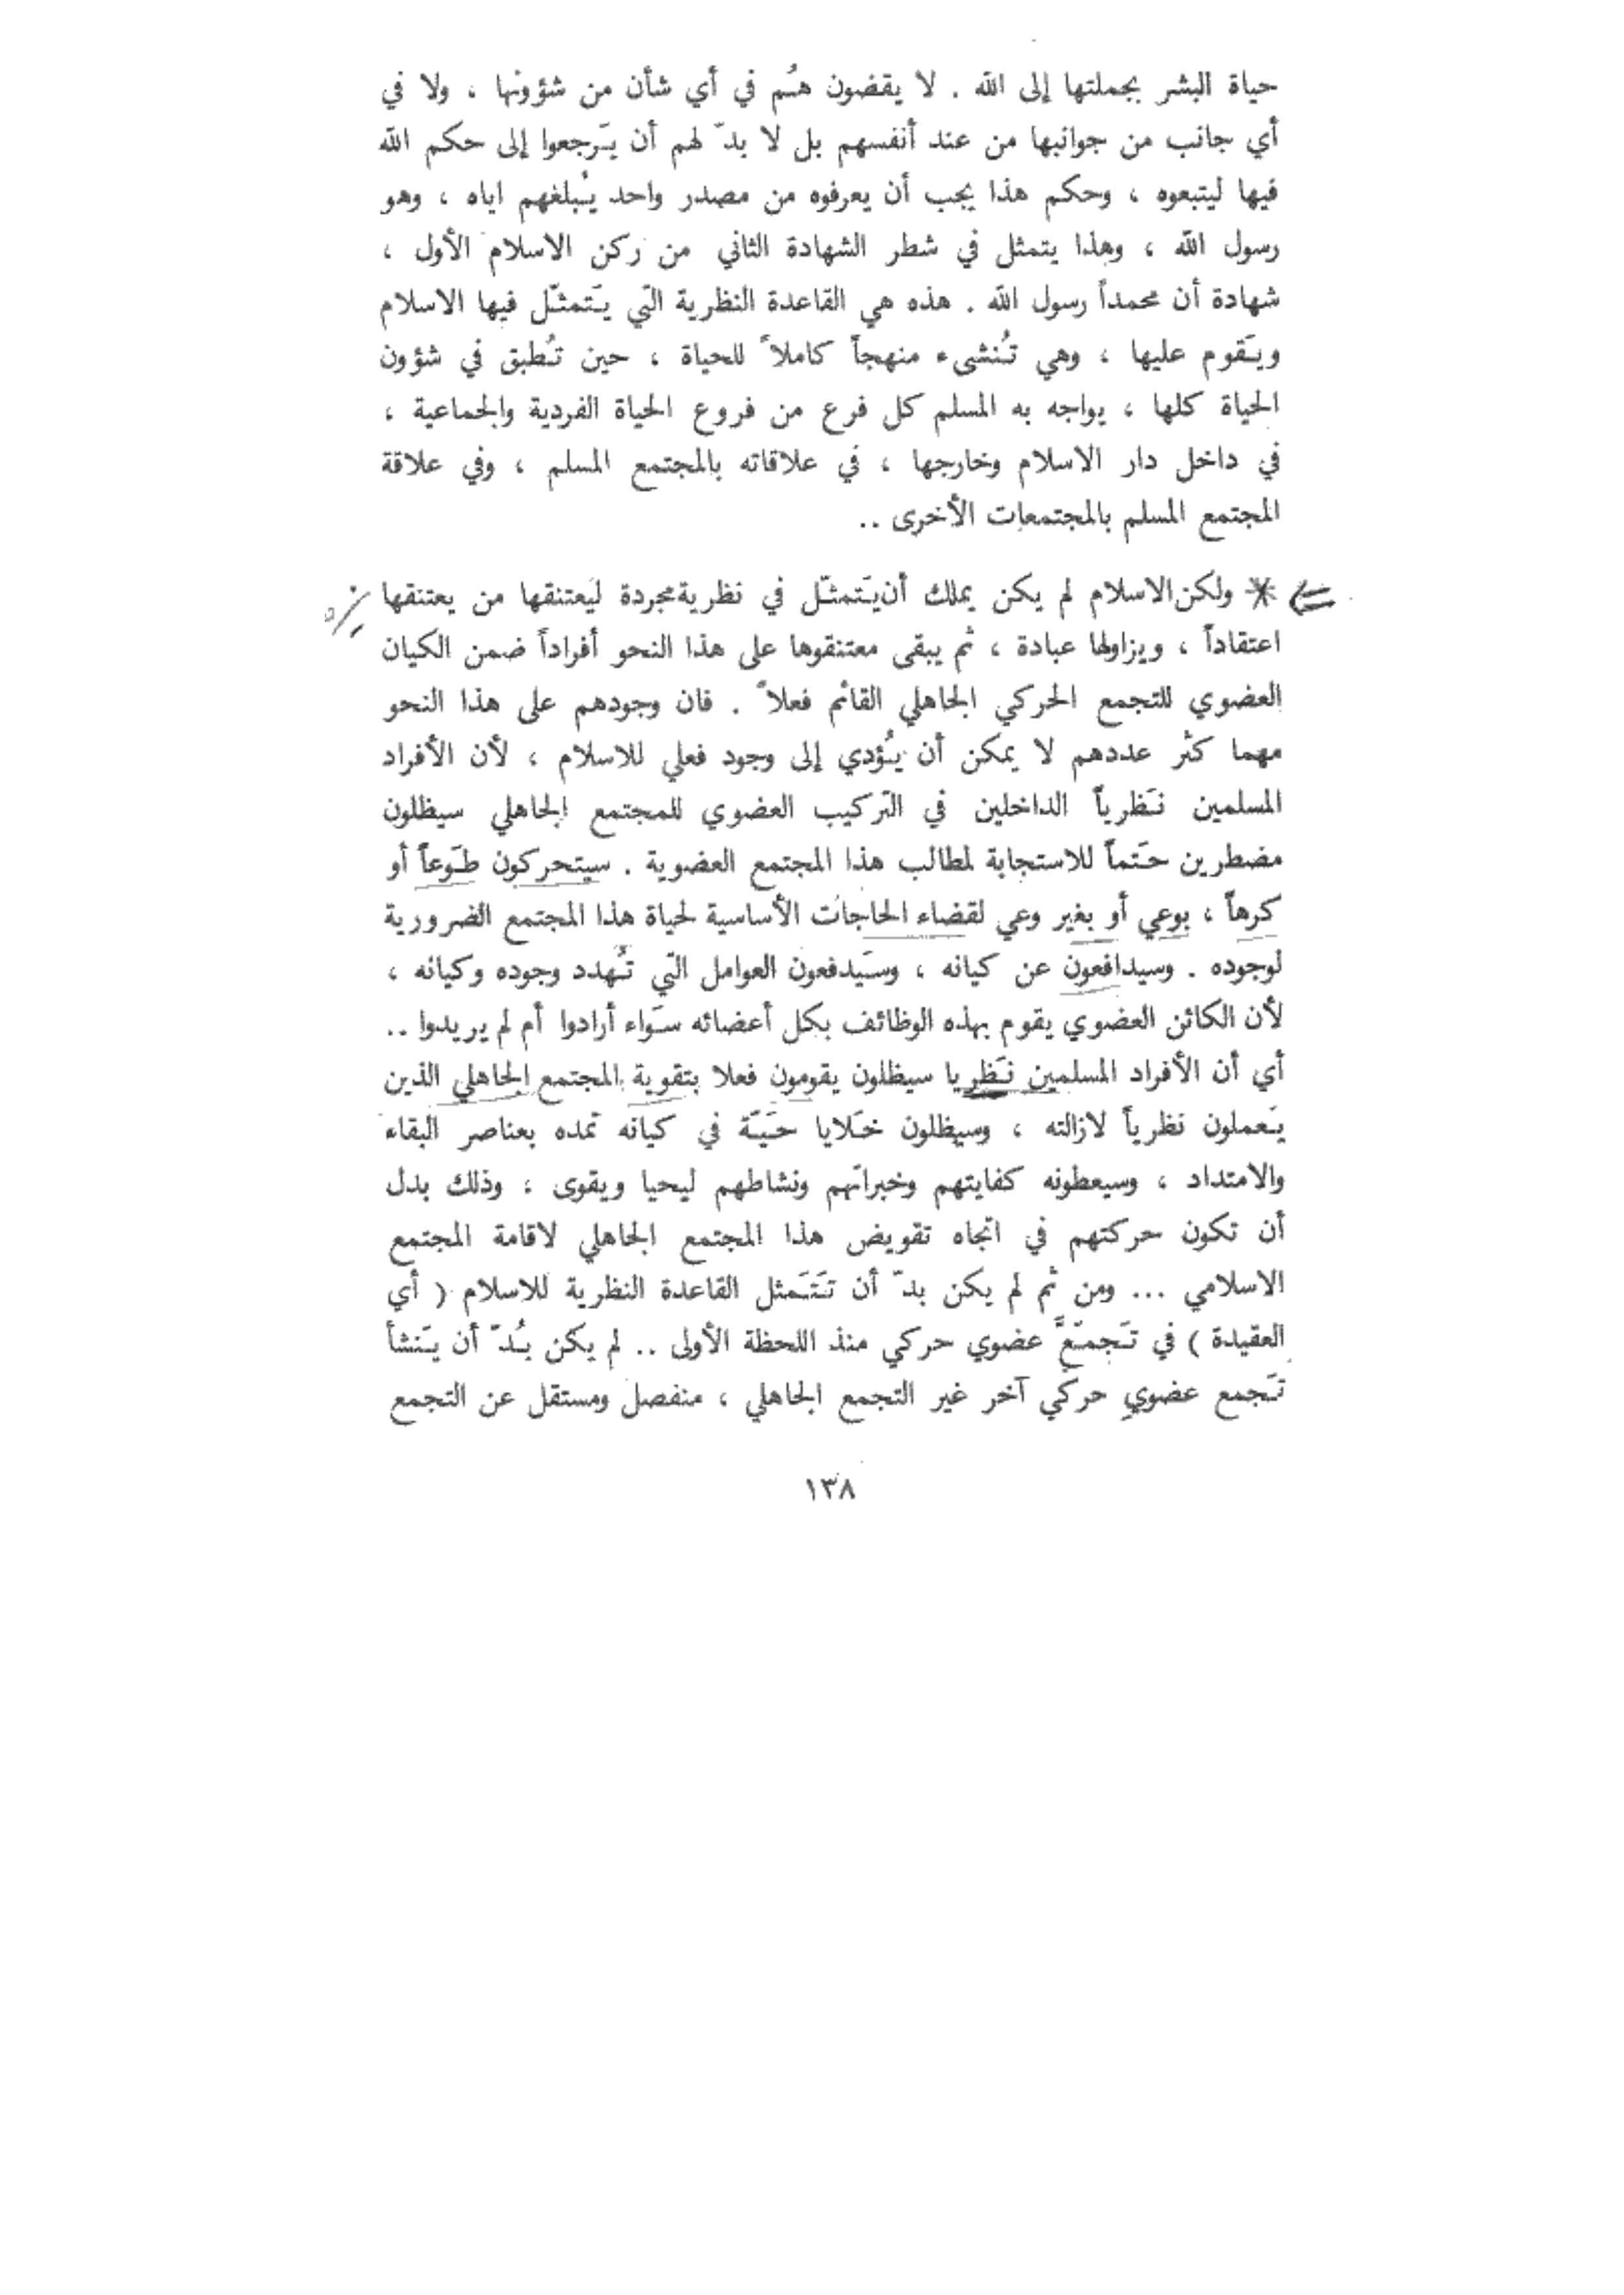 حياة البشر بجملتها إلى الله . لا يقضون هُم في أي شأن من شؤونها ، ولا في
أي جانب من جوانبها من عند أنفسهم بل لا بدّ لهم أن يَرجعوا إلى حكم الله
فيها ليتبعوه ، وحكم هذا يجب أن يعرفوه من مصدر واحد يُبلغهم اياه ، وهو
رسول الله ، وهذا يتمثل في شطر الشهادة الثاني من ركن الاسلام الأول ،
شهادة أن محمداً رسول الله . هذه هي القاعدة النظرية التي يَتمثّل فيها الاسلام
ويَقوم عليها ، وهي تُنشىء منهجاً كاملاً للحياة ، حين تُطبق في شؤون
الحياة كلها ، يواجه به المسلم كل فرع من فروع الحياة الفردية والجماعية ،
في داخل دار الاسلام وخارجها ، في علاقاته بالمجتمع المسلم ، وفي علاقة
المجتمع المسلم بالمجتمعات الأخرى ..
* ولكن الاسلام لم يكن يملك أن يَتمثّل في نظرية مجردة ليَعتنقها من يعتنقها
اعتقاداً ، ويزاولها عبادة ، ثم يبقى معتنقوها على هذا النحو أفراداً ضمن الكيان
العضوي للتجمع الحركي الجاهلي القائم فعلاً . فان وجودهم على هذا النحو
مهما كثر عددهم لا يمكن أن يُؤدي إلى وجود فعلي للاسلام ، لأن الأفراد
المسلمين نَظرياً الداخلين في التركيب العضوي للمجتمع الجاهلي سيظلون
مضطرين حَتماً للاستجابة لمطالب هذا المجتمع العضوية . سيتحركون طَوعاً أو
كرهاً ، بوعي أو بغير وعي لقضاء الحاجات الأساسية لحياة هذا المجتمع الضرورية
لوجوده . وسيدافعون عن كيانه ، وسَيدفعون العوامل التي تُهدد وجوده وكيانه ،
لأن الكائن العضوي يقوم بهذه الوظائف بكل أعضائه سَواء أرادوا أم لم يريدوا ..
أي أن الأفراد المسلمين نَظريا سيظلون يقومون فعلا بتقوية المجتمع الجاهلي الذين
يَعملون نظرياً لازالته ، وسيظلون خَلايا حَيّة في كيانه تمده بعناصر البقاء
والامتداد ، وسيعطونه كفايتهم وخبراتهم ونشاطهم ليحيا ويقوى ، وذلك بدل
أن تكون حركتهم في اتجاه تقويض هذا المجتمع الجاهلي لاقامة المجتمع
الاسلامي ... ومن ثم لم يكن بدّ أن تَتَمثل القاعدة النظرية للاسلام ( أي
العقيدة ) في تَجمّعٍ عضوي حركي منذ اللحظة الأولى .. لم يكن بُدّ أن يَنشأ
تَجمع عضوي حركي آخر غير التجمع الجاهلي ، منفصل ومستقل عن التجمع
١٣٨